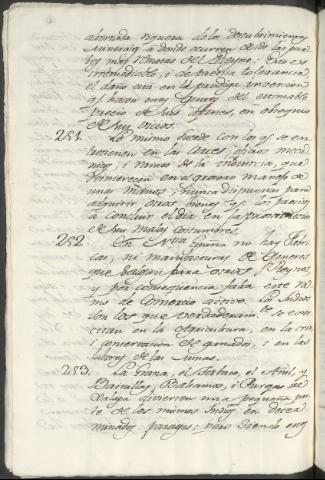 abonada riquera de los descubrimientos
Minerales a donde ocurren desde las par
tes mas remotas del Reyno; Esto es
irremediable, i de precisa tolerancia
el daño está en la prodiga inversion
q.e hacen estas Gentes del estimable
precio de sus afanes, en obsequio
de sus vicios.
251. Lo mismo sucede con los q.e se en
tretienen en las Artes, oficios meca
nicos, i ramos de la industria, que
permanecen en el grosero manejo de
unas manos, nunca dispuestas para
adquirir otros bienes q.e los precisos
a concluir el dia en la
de sus malas costumbres.
252. En Nueva España no hay Fabri
cas, ni manufacturas de Generos
que salgan para otros Reynos,
y por consequencia falta este ra
mo de Comercio activo. Los Indios
son los que verdaderam.te se exer
citan en la Agricultura, en la cria
i conservacion de ganados, i en las
labores de las Minas.
253. La Grana, el Tabaco, el Añil, y
Bainillas, Balsamos, i Purga de
Xalapa divierten una pequeña par
te de los mismos Indios en deter
minados parages; pero siendo estos